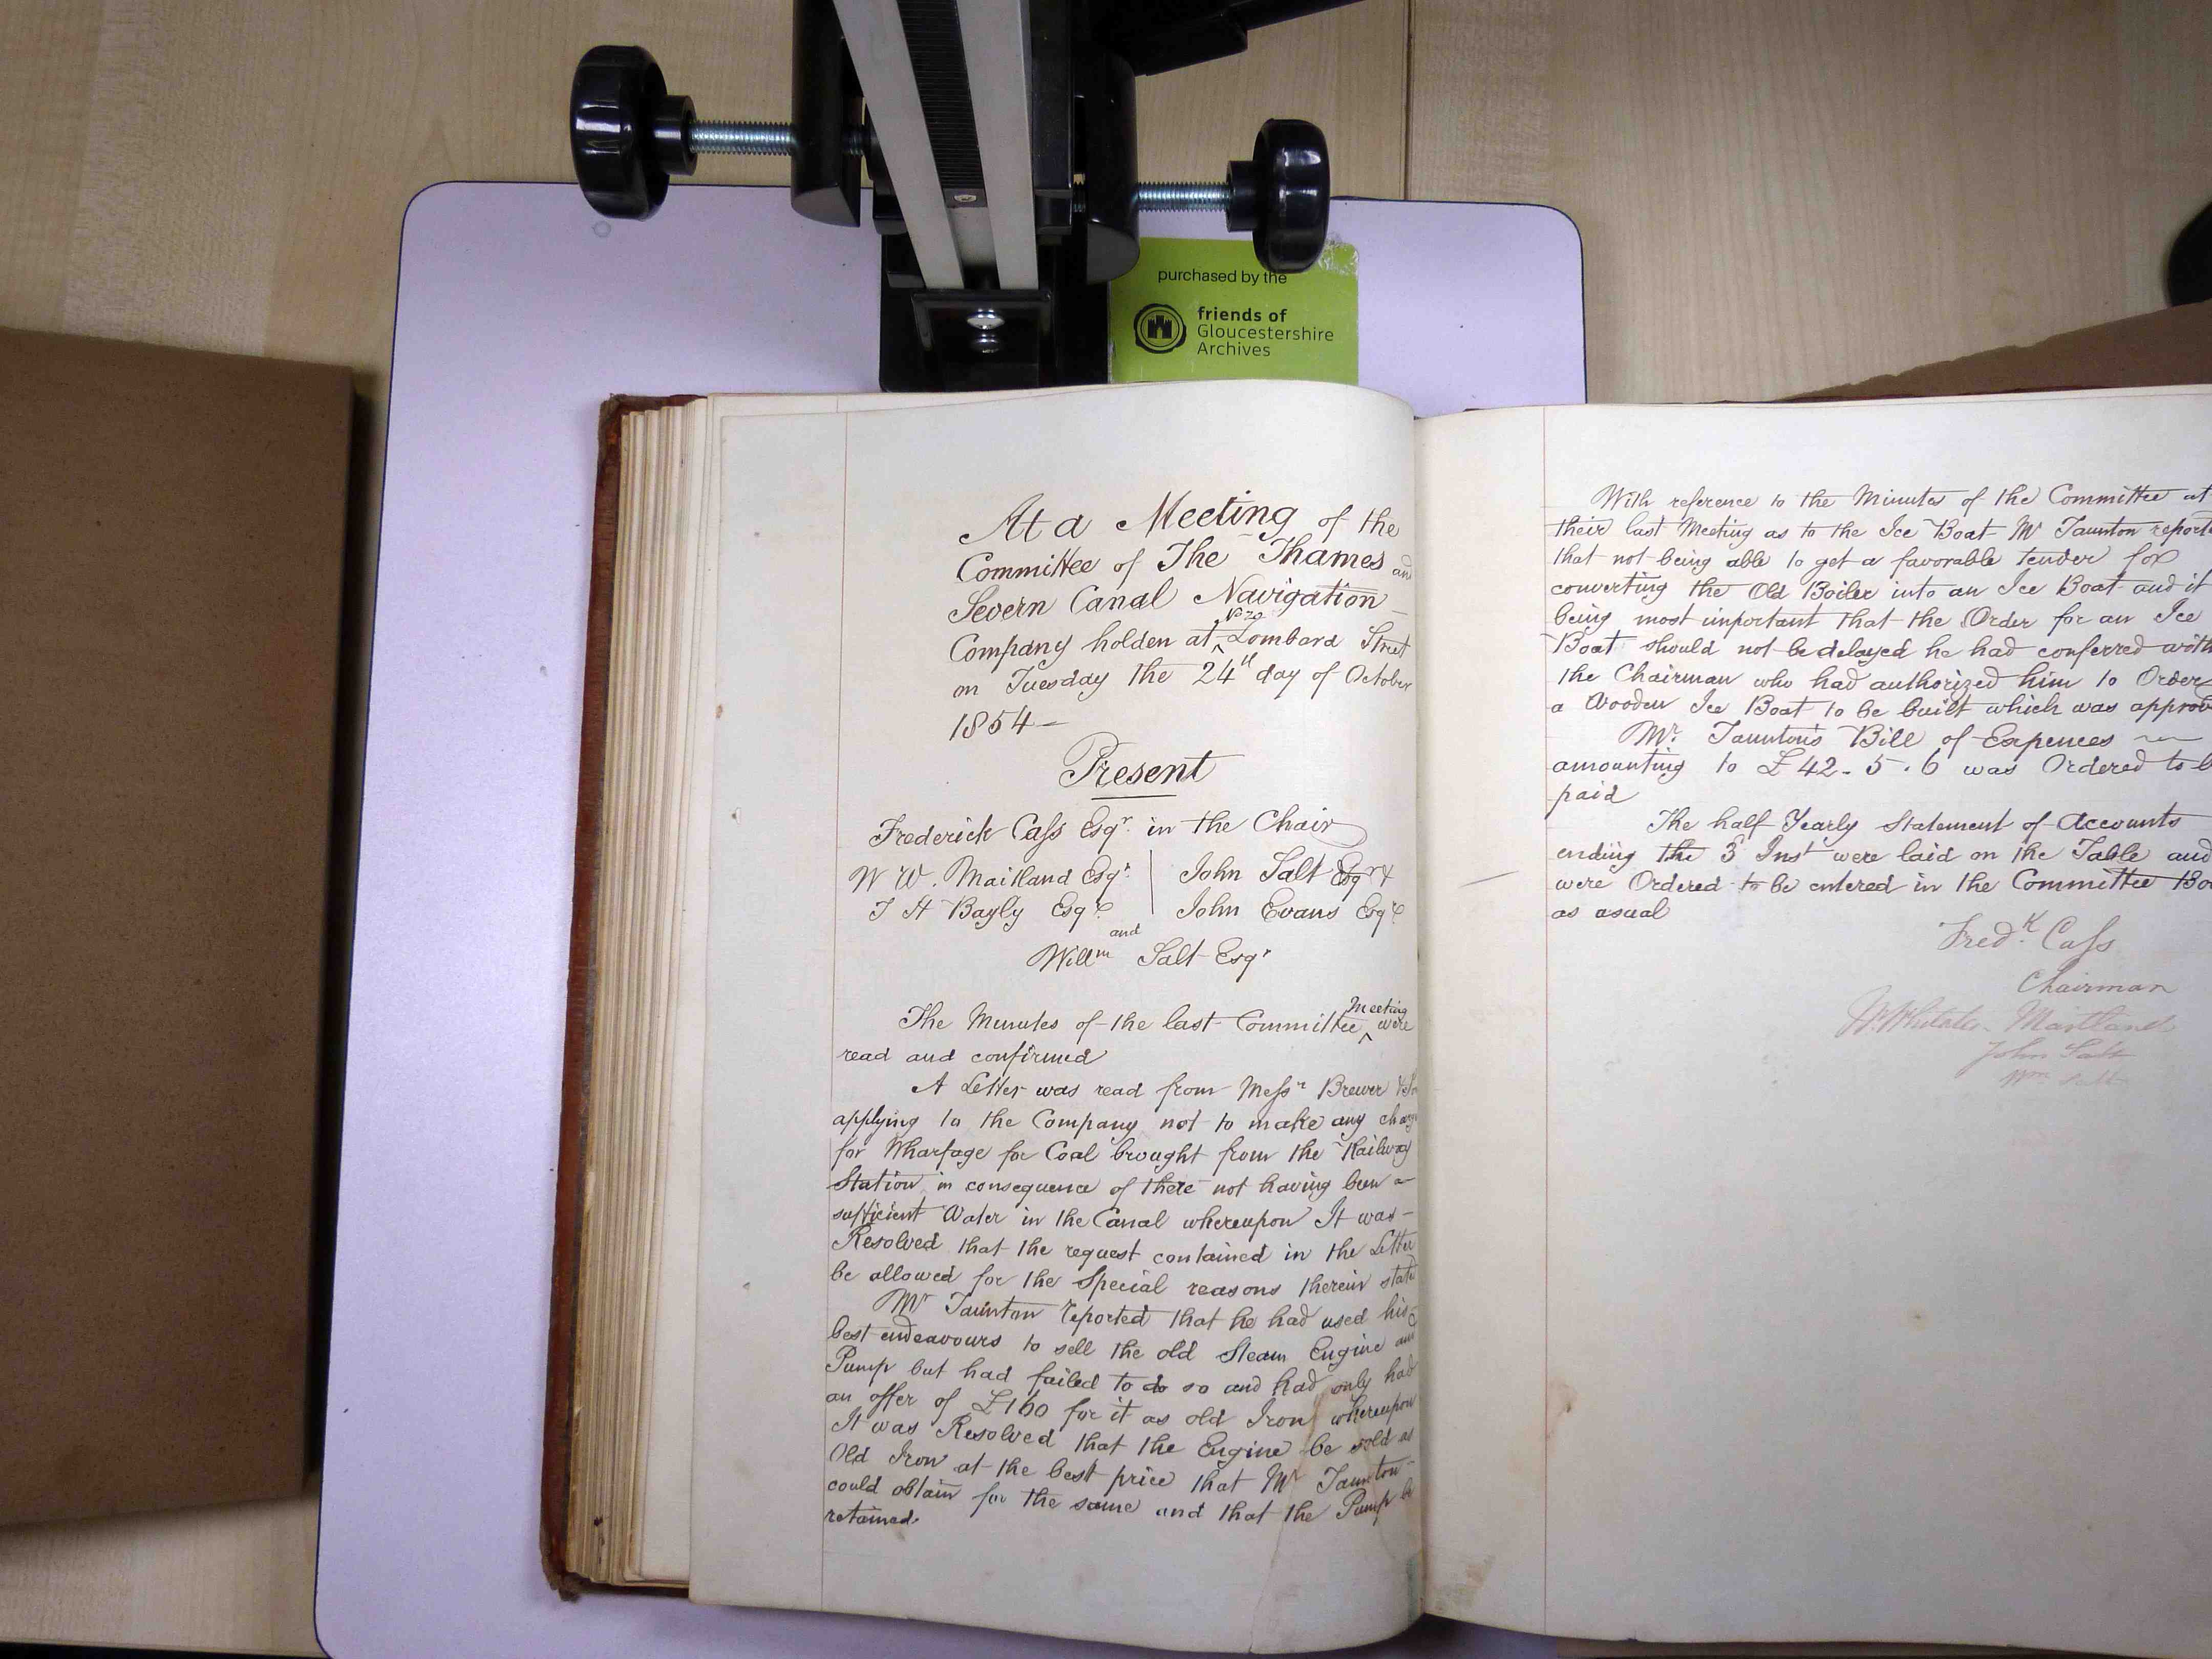 purchased by the
friends of
Gloucestershire
Archives
At a Meeting of the
Committee of The Thames and
Severn Canal Navigation
Company holden at Lombard Street
on Tuesday the 24th day of October
1854
Present
Frederick Cass Esqr. in the Chair
W W. Maitland Esqr. John Salt Esqr
T H Bayly Esqre John Evans Esqre
and
Willm Salt Esqr
The Minutes of the last Committee Meeting were
read and confirmed
A Letter was read from Messrs Brewer
applying to the Company not to make any
for Wharfage for Coal brought from the Railway
Station in consequence of there not having been a
sufficient Water in the Canal whereupon It was
Resolved that the request contained in the Letter
be allowed for the Special reasons therein
Mr Taunton reported that he had used his
best endeavours to sell the old Steam Engine and
Pump but had failed to do so and had only had
an offer of £160 for it as old Iron whereupon
It was Resolved that the Engine be sold as
Old Iron at the best price that Mr Taunton
could obtain for the same and that the Pump be
retained.
With reference to the Minutes of the Committee at
their last Meeting as to the Ice Boat Mr Taunton
that not being able to get a favorable tender for
converting the Old Boiler into an Ice Boat and it
being most important that the Order for an Ice
Boat should not be delayed he had conferred with
the Chairman who had authorized him to Order
a Wooden Ice Boat to be built which was
Mr. Taunton's Bill of Expences
amounting to £42. 5. 6 was Ordered to
paid
The half Yearly Statement of Accounts
ending the Inst were laid on the Table and
were Ordered to be entered in the Committee
as usual
Fredk. Cass
Chairman
Maitland
John Salt
Wm Salt